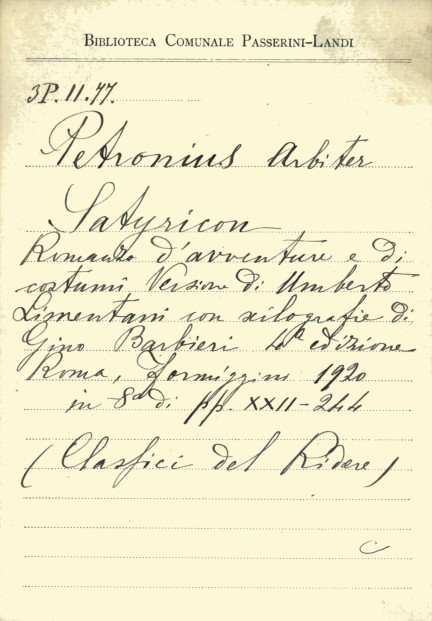 BIBLIOTECA COMUNALE PASSERINI-LANDI
3P.11.77.
Petronius Arbiter
Satyricon
Romanzo d'avventure e di
costumi. Versione di Umberto
Limentani con xilografie di
Gino Barbieri 4ª edizione
Roma, Formiggini 1920
in 8° di pp. XXII-244
(Classici del Ridere)
C